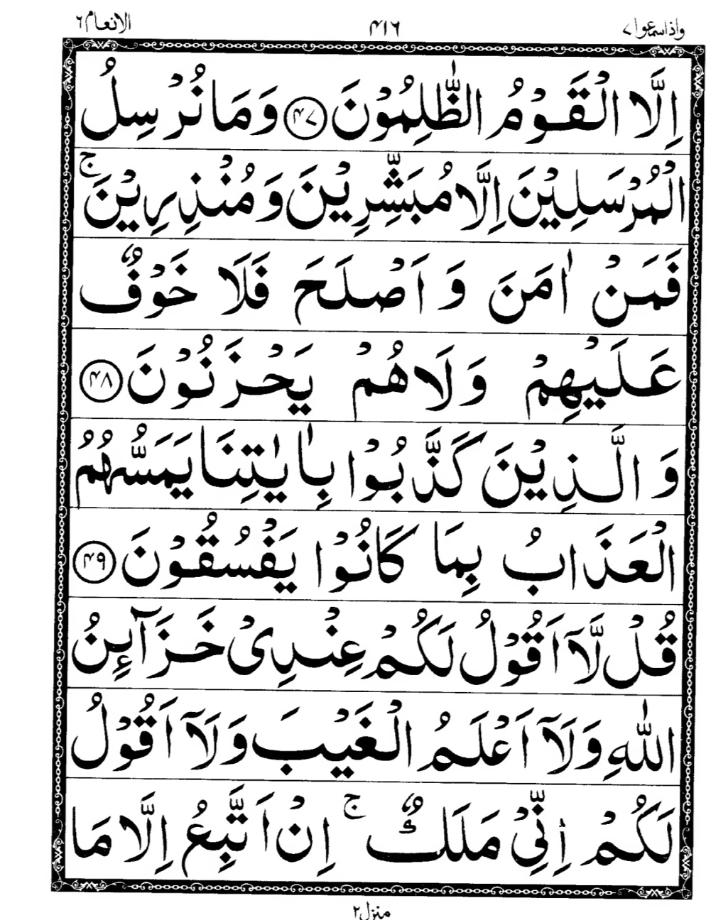 واذاسمعوا۷ ۴۱۶ الانعام۶
اِلَّا الْقَوْمُ الظّٰلِمُوْنَ ﴿۴۷﴾ وَمَا نُرْسِلُ
الْمُرْسَلِيْنَ اِلَّا مُبَشِّرِيْنَ وَمُنْذِرِيْنَ ۚ
فَمَنْ اٰمَنَ وَ اَصْلَحَ فَلَا خَوْفٌ
عَلَيْهِمْ وَلَا هُمْ يَحْزَنُوْنَ ﴿۴۸﴾
وَ الَّذِيْنَ كَذَّبُوْا بِاٰيٰتِنَا يَمَسُّهُمُ
الْعَذَابُ بِمَا كَانُوْا يَفْسُقُوْنَ ﴿۴۹﴾
قُلْ لَّاۤ اَقُوْلُ لَكُمْ عِنْدِىْ خَزَآئِنُ
اللّٰهِ وَلَاۤ اَعْلَمُ الْغَيْبَ وَلَاۤ اَقُوْلُ
لَكُمْ اِنِّىْ مَلَكٌ ۚ اِنْ اَتَّبِعُ اِلَّا مَا
منزل۲